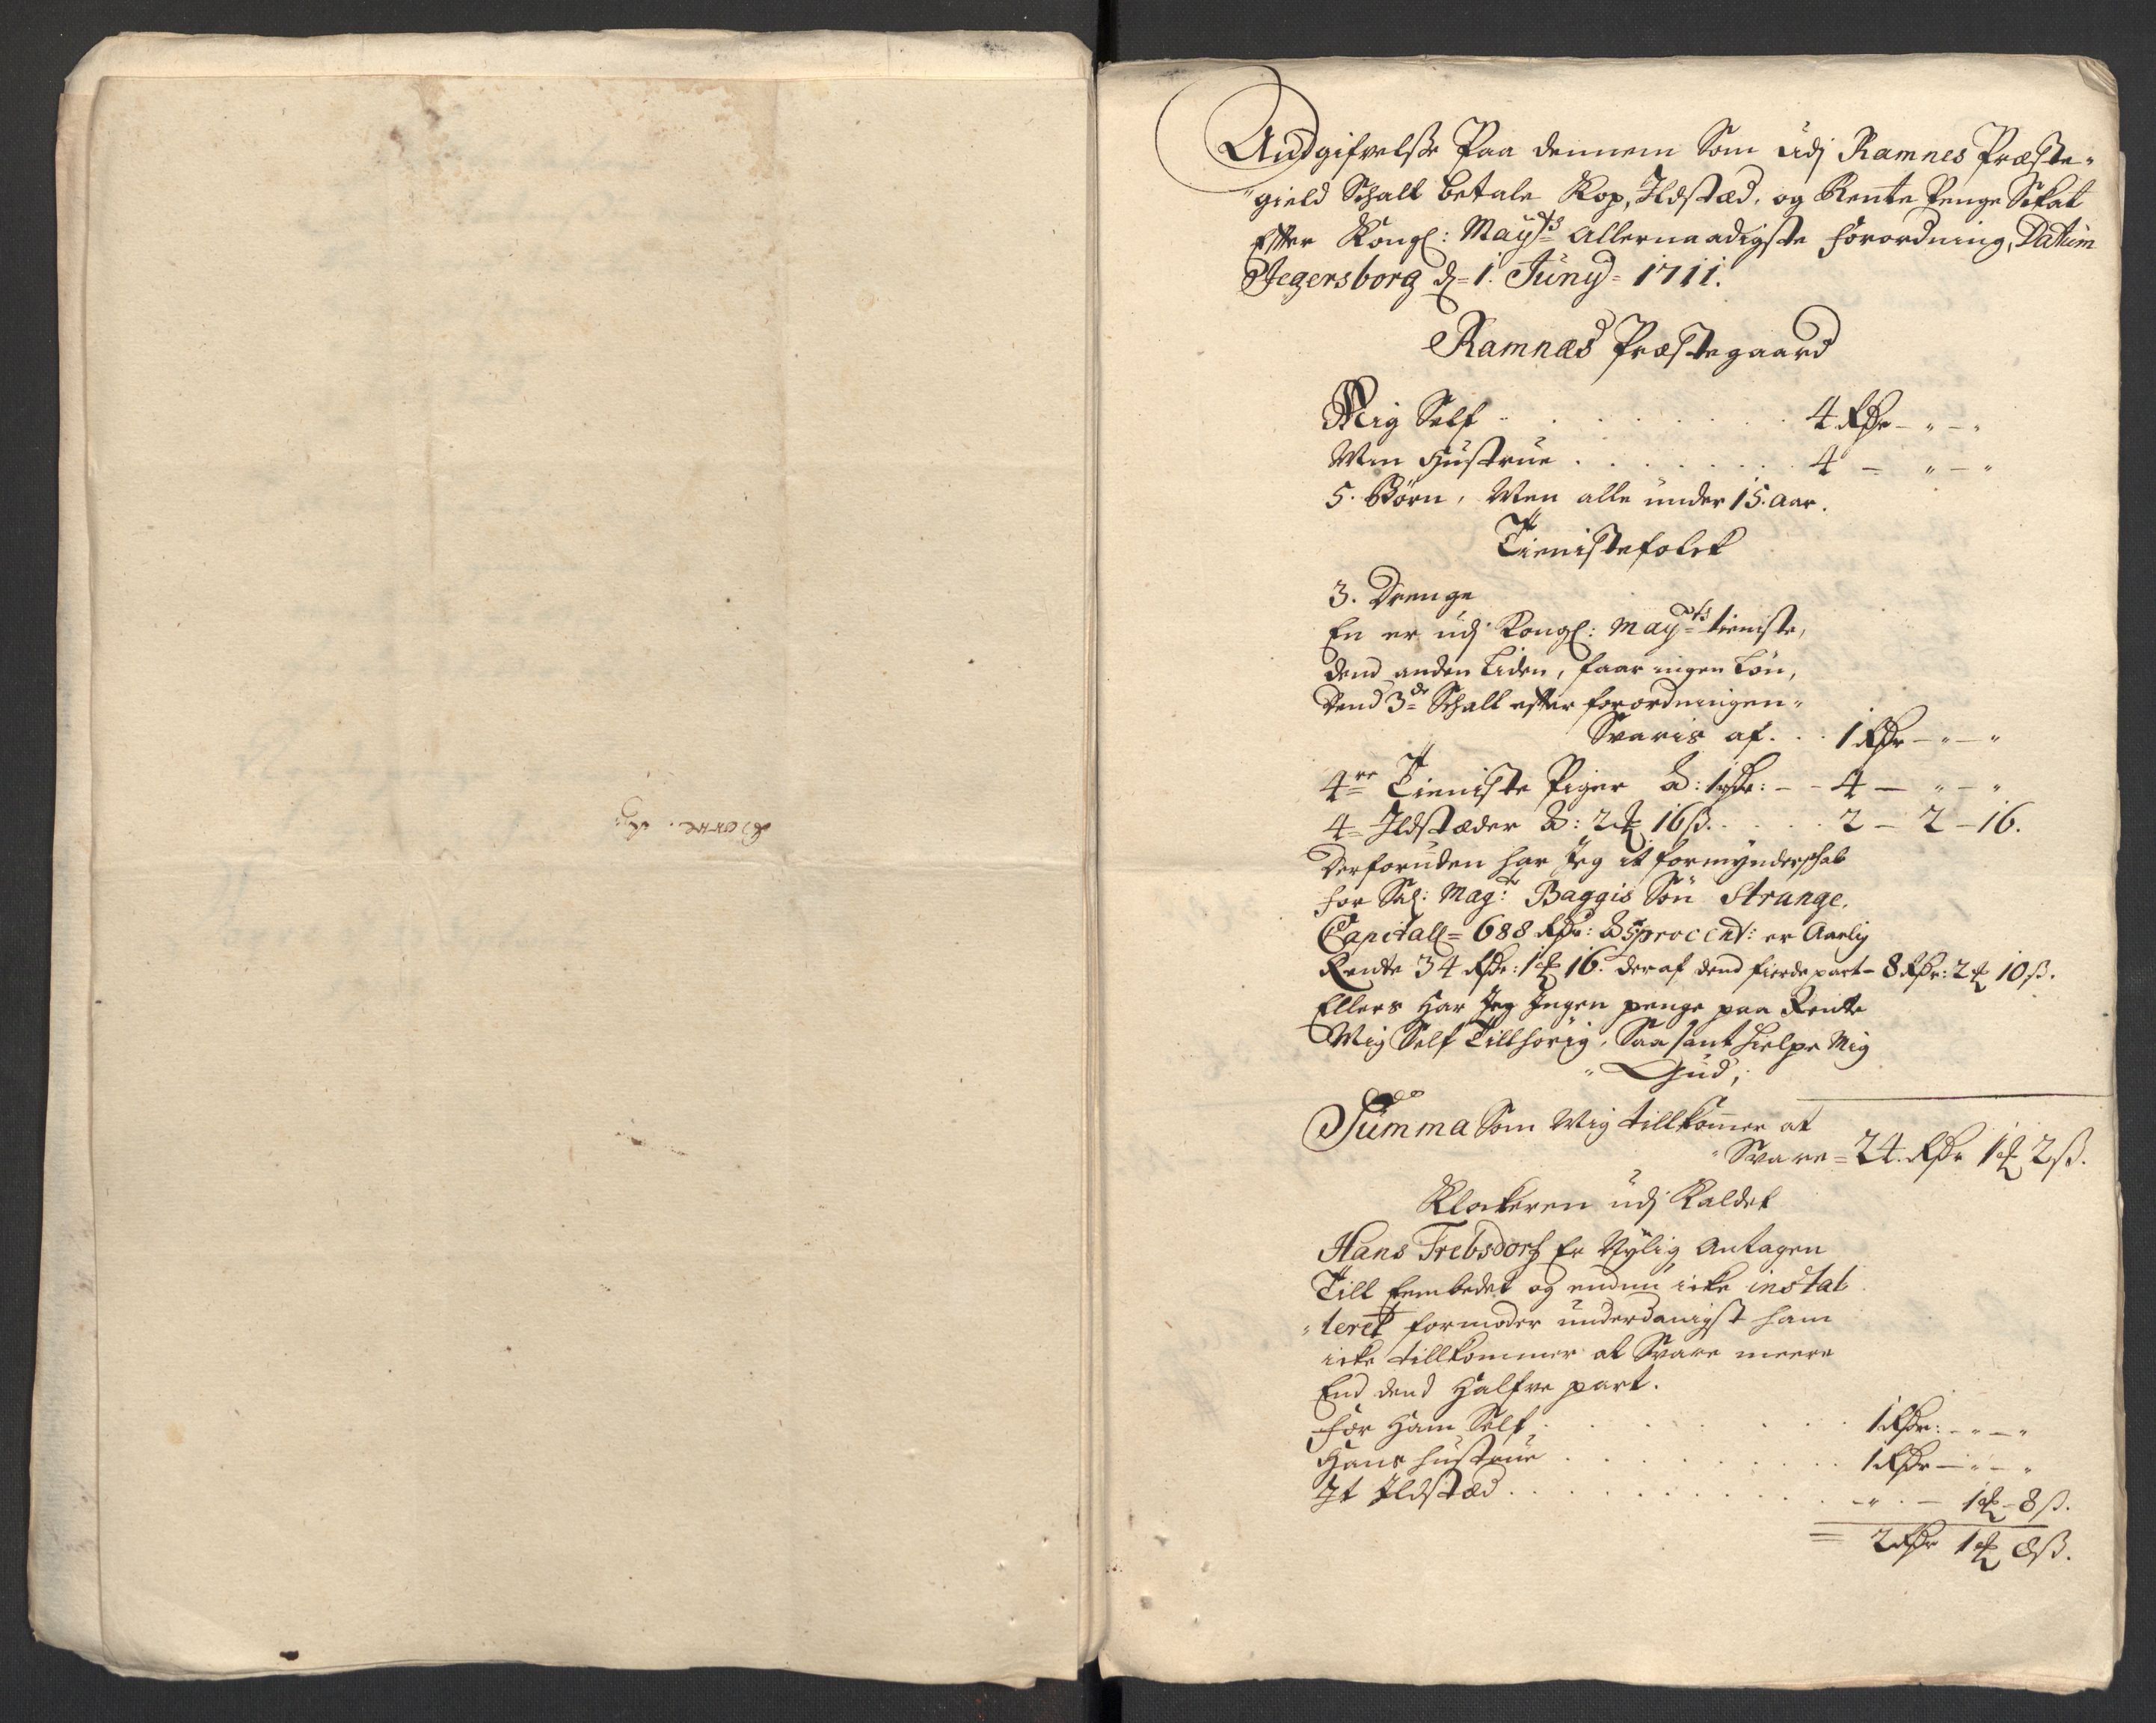 Andgifvelsse Paa dennem Som udj Ramnes Præste-
gield Schall betale Kop, Ildstæd, og Rente Penge Skat
Efter Kongl: Mayts Allernaadigste forordning, Datum
Jegersborg d. 1. Juny 1711.
Ramnæs Præstegaard
Mig Self . . . . 4 Rdr - " - "
Min Hustrue . . . . 4 - " - "
5. Børn, Men alle under 15. aar.
Tienistefolck
3. Drenge
En er udj Kongl: Mayts tieniste,
dend anden liden, faar ingen løn,
dend 3de Schall efter forordningen
Svaris af . . . 1 Rdr - " - "
4re Tieniste Piger à: 1 Rdr: - - 4 - " - "
4 Ildstæder à: 2 ort 16 ß. . . . 2 - 2 - 16.
Derforuden har Jeg it formynderschab
for Sal: Magr: Baggis Søn Strange.
Capitall = 688 Rdr: à 5 procent: er Aarlig
Rente 34 Rdr: 1 ort 16. deraf dend fierde part - 8 Rdr: 2 ort 10 ß.
Ellers Har Jeg Ingen penge paa Rente
Mig Self Tilhørig, Saa sant hielpe Mig
Gud,
Summa Som Mig tillkommer at
Svare = 24. Rdr 1 ort 2 ß.
Klockeren udj Kaldet
Hans Trebsdorf Er Nylig Antagen
Till Embedet og endnu icke instal
leret formoder underdanigst ham
icke tillkommer at Svare meere
End dend Halfve part.
for Ham Self . . . . 1 Rdr: - " - "
Hans hustrue . . . . 1 Rdr - " - "
It Ildstæd . . . . - " - 1 ort - 8 ß.
= 2 Rdr 1 ort 8 ß.